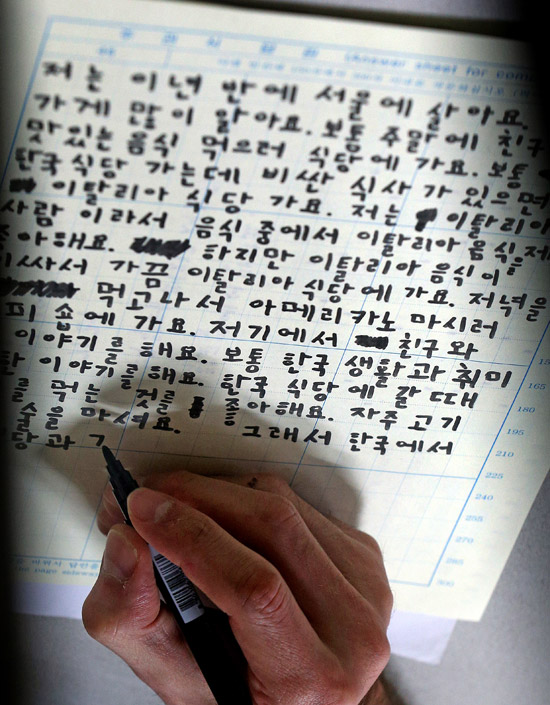 (Answer sheet for com
저는 이년 반에 서울에 살아요.
가게 많이 알아요. 보통 주말에 친구
맛있는 음식 먹으러 식당에 가요. 보통
한국 식당 가는데 비싼 식사가 있으면
이탈리아 식당 가요. 저는 이탈리아
사람이라서 음식 중에서 이탈리아 음식을 제
아해요. 하지만 이탈리아 음식이
비싸서 가끔 이탈리아 식당에 가요. 저녁을
먹고나서 아메리카노 마시러
피숍에 가요. 저기에서 친구와
이야기를 해요. 보통 한국 생활과 취미
한 이야기를 해요. 한국 식당에 갈 때
를 먹는 것을 좋아해요. 자주 고기
술을 마셔요. 그래서 한국에서
당과
165
180
195
210
225
240
255
270
285
300